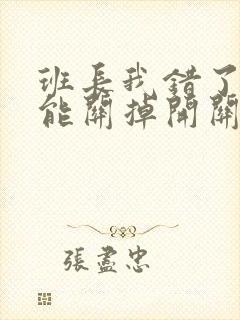 班長我錯了
能關掉開關
張盡忠